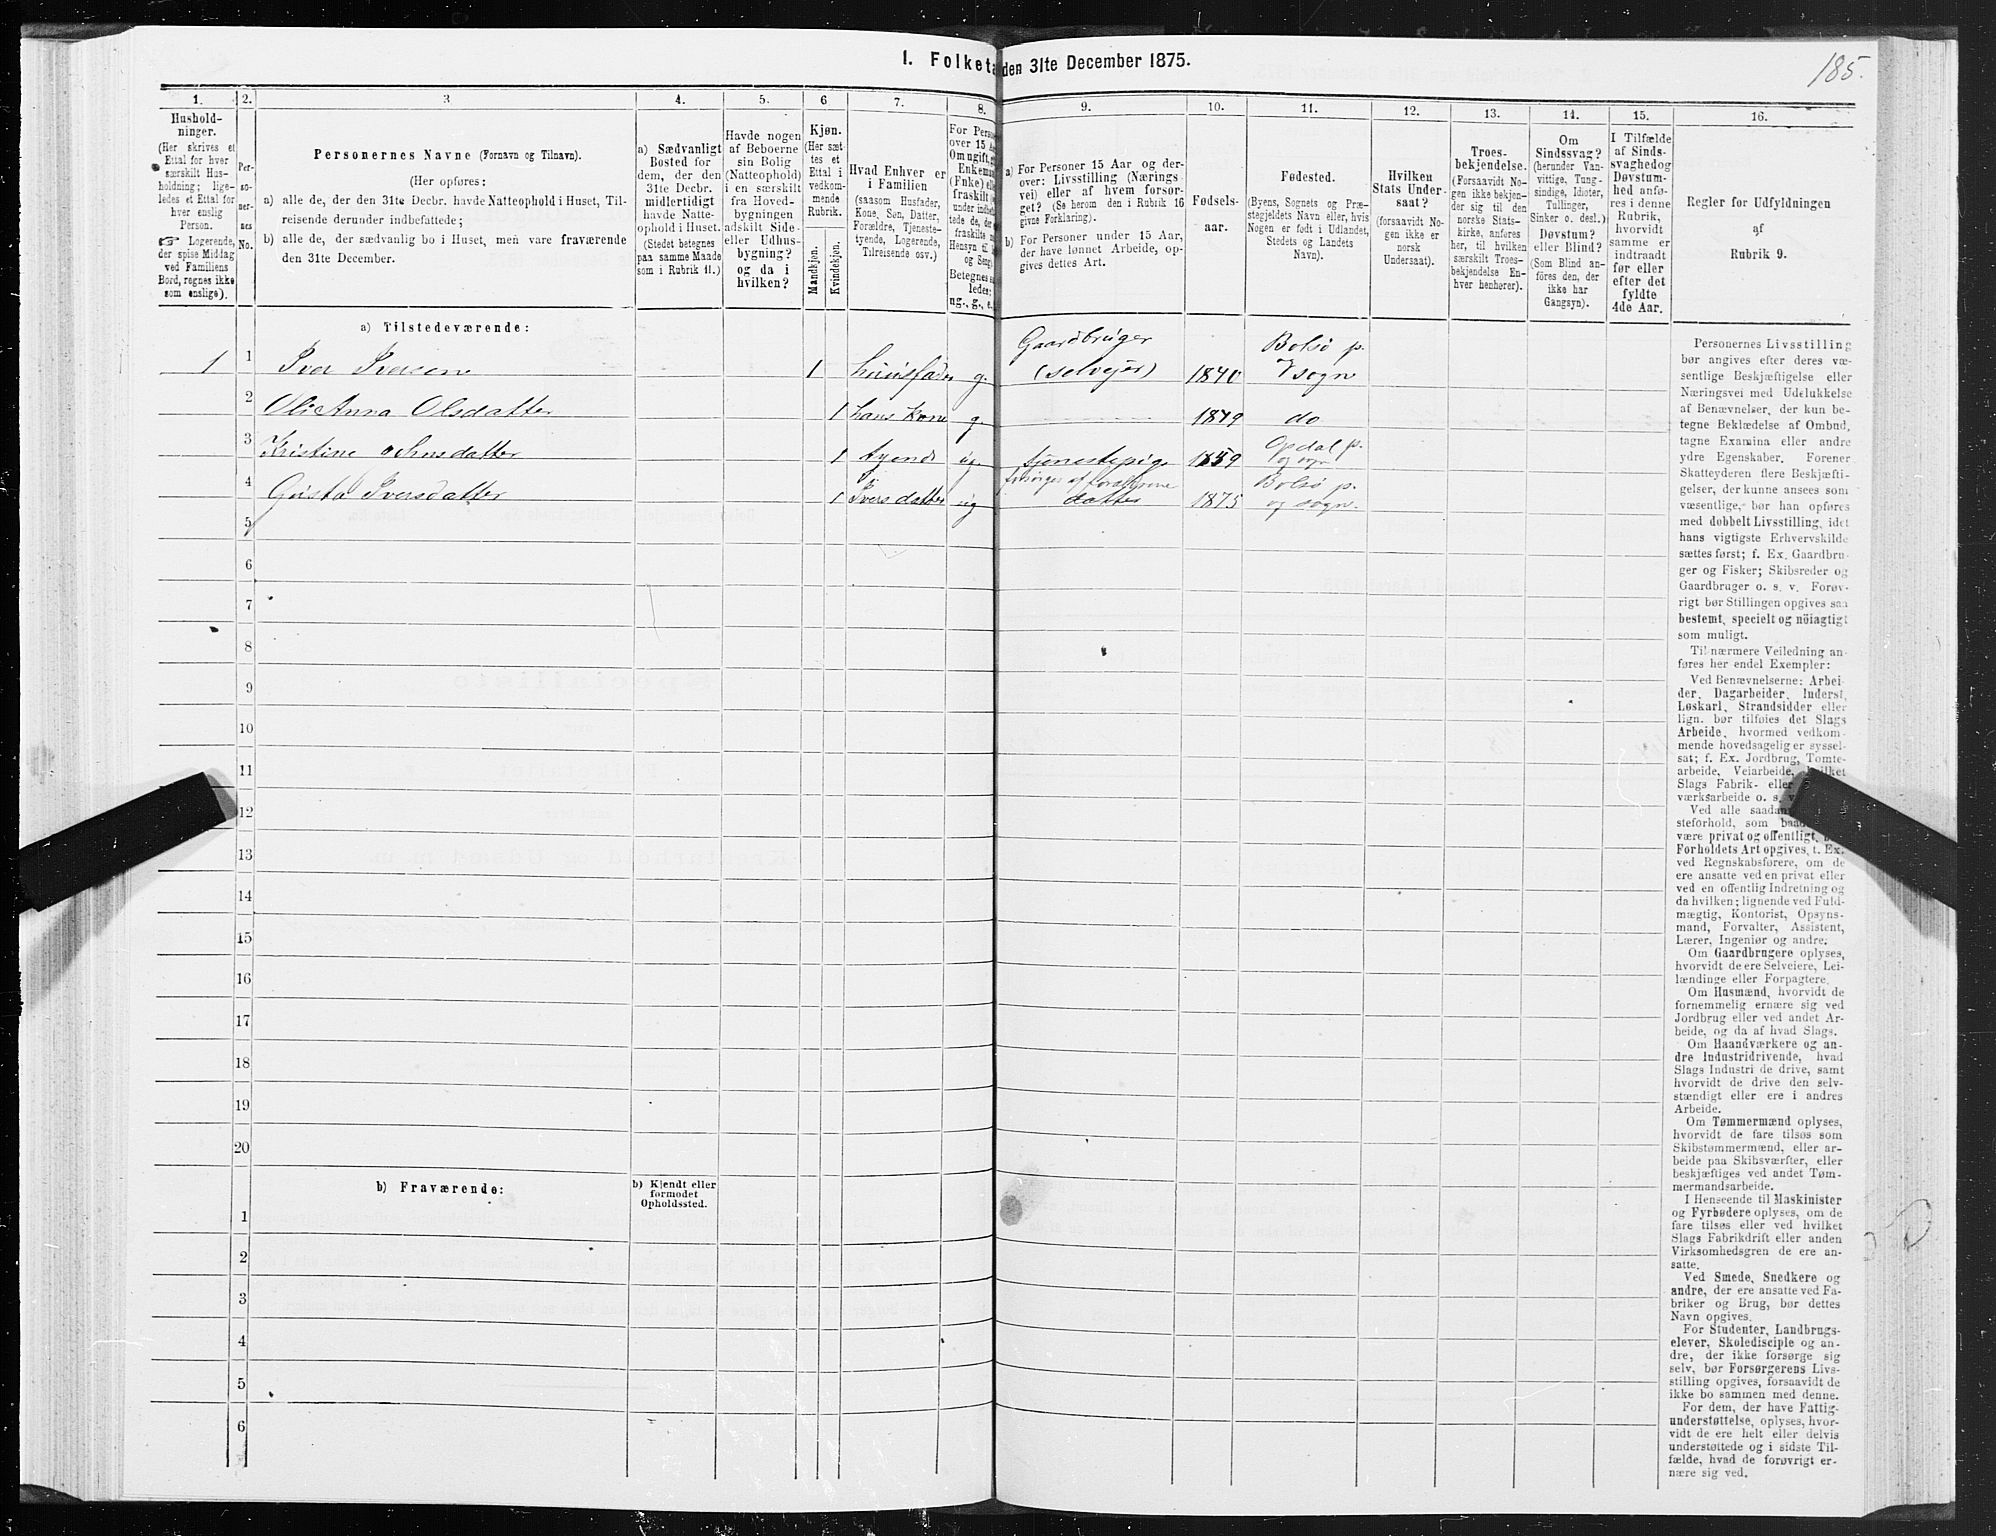 185.
I. Folketæ den 31te December 1875.
1. 2. 3 4. 5. 6 7. 8. 9. 10. 11. 12. 13. 14. 15. 16.
Hushold-
ninger.
(Her skrives et
Ettal for hver
særskilt Hus-
holdning; lige-
ledes et Ettal for
hver enslig
Person.
☞ Logerende,
der spise Middag
ved Familiens
Bord, regnes ikke
som enslige).
Per-
so-
ner-
nes
No.
Personernes Navne (Fornavn og Tilnavn).
(Her opføres:
a) alle de, der den 31te Decbr. havde Natteophold i Huset, Til-
reisende derunder indbefattede;
b) alle de, der sædvanlig bo i Huset, men vare fraværende
den 31te December.
a) Sædvanligt
Bosted for
dem, der den
31te Decbr.
midlertidigt
havde Natte-
ophold i Huset.
(Stedet betegnes
paa samme Maade
som i Rubrik 11.)
Havde nogen
af Beboerne
sin Bolig
(Natteophold)
i en særskilt
fra Hoved-
bygningen
adskilt Side-
eller Udhus-
bygning?
og da i
hvilken?
Kjøn.
(Her sæt-
tes et
Ettal i
vedkom-
mende
Rubrik.
Mandkjøn.
Kvindekjøn.
Hvad Enhver er
i Familien
(saasom Husfader,
Kone, Søn, Datter,
Forældre, Tjeneste-
tyende, Logerende,
Tilreisende osv.)
For Perso
over 15 A
Om ugift, g
Enkema
(Enke) el
fraskilt
under indbe
tede de, de
fraskilte
Hensyn til
og Seng
Betegnes s
ledes;
ug., g., e.
a) For Personer 15 Aar og der-
over: Livsstilling (Nærings-
vei) eller af hvem forsør-
get? (Se herom den i Rubrik 16
givne Forklaring).
b) For Personer under 15 Aar,
der have lønnet Arbeide, op-
gives dettes Art.
Fødsels-
aar.
Fødested.
(Byens, Sognets og Præ-
stegjeldets Navn eller, hvis
Nogen er født i Udlandet,
Stedets og Landets
Navn).
Hvilken
Stats Under-
saat?
(forsaavidt No-
gen ikke er
norsk
Undersaat).
Troes-
bekjendelse.
(Forsaavidt No-
gen ikke bekjen-
der sig til den
norske Stats-
kirke, anføres
her, til hvilken
særskilt Troes-
bekjendelse En-
hver henhører).
Om
Sindssvag?
(herunder Van-
vittige, Tung-
sindige, Idioter,
Tullinger,
Sinker o. desl.)
Døvstum?
eller Blind?
(Som Blind an-
føres den, der
ikke har
Gangsyn).
I Tilfælde
af Sinds-
svaghed og
Døvstum-
hed anfø-
res i denne
Rubrik,
hvorvidt
samme er
indtraadt
før eller
efter det
fyldte
4de Aar.
Regler for Udfyldningen
af
Rubrik 9.
a) Tilstedeværende:
1 1 Iver Iversen 1 huusfader g. Gaardbruger (selveier) 1840 Bolsö p. sogn
2 Oli Anna Olsdatter 1 hans kone g. 1849 do
3 Kristine Johnsdatter 1 tyende ug tjenestepige 1859 Opdal p. og sogn
4 Gusta Iversdatter 1 Ivers datter ug forsörges af forældrene datter 1875 Bolsö p. og sogn.
5
6
7
8
9
10
11
12
13
14
15
16
17
18
19
20
b) Fraværende:
b) Kjendt eller
formodet
Opholdssted.
1
2
3
4
5
6
Personernes Livsstilling
bør angives efter deres væ-
sentlige Beskjæftigelse eller
Næringsvei med Udelukkelse
af Benævnelser, der kun be-
tegne Beklædelse af Ombud,
tagne Examina eller andre
ydre Egenskaber. Forener
Skatteyderen flere Beskjæfti-
gelser, der kunne ansees som
væsentlige, bør han opføres
med dobbelt Livsstilling, idet
hans vigtigste Erhvervskilde
sættes først; f. Ex. Gaardbru-
ger og Fisker; Skibsreder og
Gaardbruger o. s. v. Forøv-
rigt bør Stillingen opgives saa
bestemt, specielt og nöiagtigt
som muligt.
Til nærmere Veiledning an-
føres her endel Exempler:
Ved Benævnelserne: Arbei-
der, Dagarbeider, Inderst,
Løskarl, Strandsidder eller
lign. bør tilføies det Slags
Arbeide, hvormed vedkom-
mende hovedsagelig er syssel-
sat; f. Ex. Jordbrug, Tomte-
arbeide, Veiarbeide, hvilket
Slags Fabrik- eller
værksarbeide o. s. v.
Ved alle saadan
steforhold, som baa
være privat og offentligt,
Forholdets Art opgives, f. Ex.
ved Regnskabsførere, om de
ere ansatte ved en privat eller
ved en offentlig Indretning og
da hvilken; lignende ved Fuld-
mægtig, Kontorist, Opsyns-
mand, Forvalter, Assistent,
Lærer, Ingeniør og andre.
Om Gaardbrugere oplyses,
hvorvidt de ere Selveiere, Lei-
lændinge eller Forpagtere.
Om Husmænd, hvorvidt de
fornemmelig ernære sig ved
Jordbrug eller ved andet Ar-
beide, og da af hvad Slags.
Om Haandværkere og an-
dre Industridrivende, hvad
Slags Industri de drive, samt
hvorvidt de drive den selv-
stændigt eller ere i andres
Arbeide.
Om Tømmermænd oplyses,
hvorvidt de fare tilsøs som
Skibstømmermænd, eller ar-
beide paa Skibsværfter, eller
beskjæftiges ved andet Tøm-
mermandsarbeide.
I Henseende til Maskinister
og Fyrbødere oplyses, om de
fare tilsøs eller ved hvilket
Slags Fabrikdrift eller anden
Virksomhedsgren de ere an-
satte.
Ved Smede, Snedkere og
andre, der ere ansatte ved Fa-
briker og Brug, bør dettes
Navn opgives.
For Studenter, Landbrugs-
elever, Skoledisciple og an-
dre, der ikke forsørge sig
selv, bør Forsørgerens Livs-
stilling opgives, forsaavidt de
ikke bo sammen med denne.
For dem, der have Fattig-
understøttelse, oplyses, hvor-
vidt de ere helt eller delvis
understøttede og i sidste Til-
fælde, hvad de forøvrigt er-
nære sig ved.